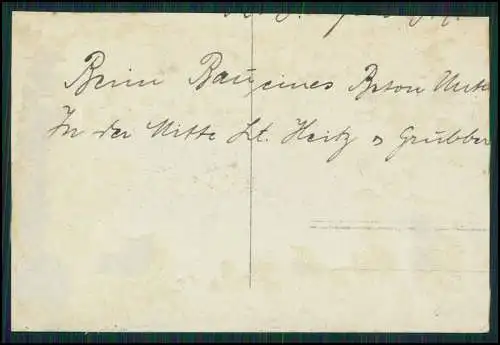 Beim Bau eines Beton Unte
In der Mitte Lt. Heitz & Grubber